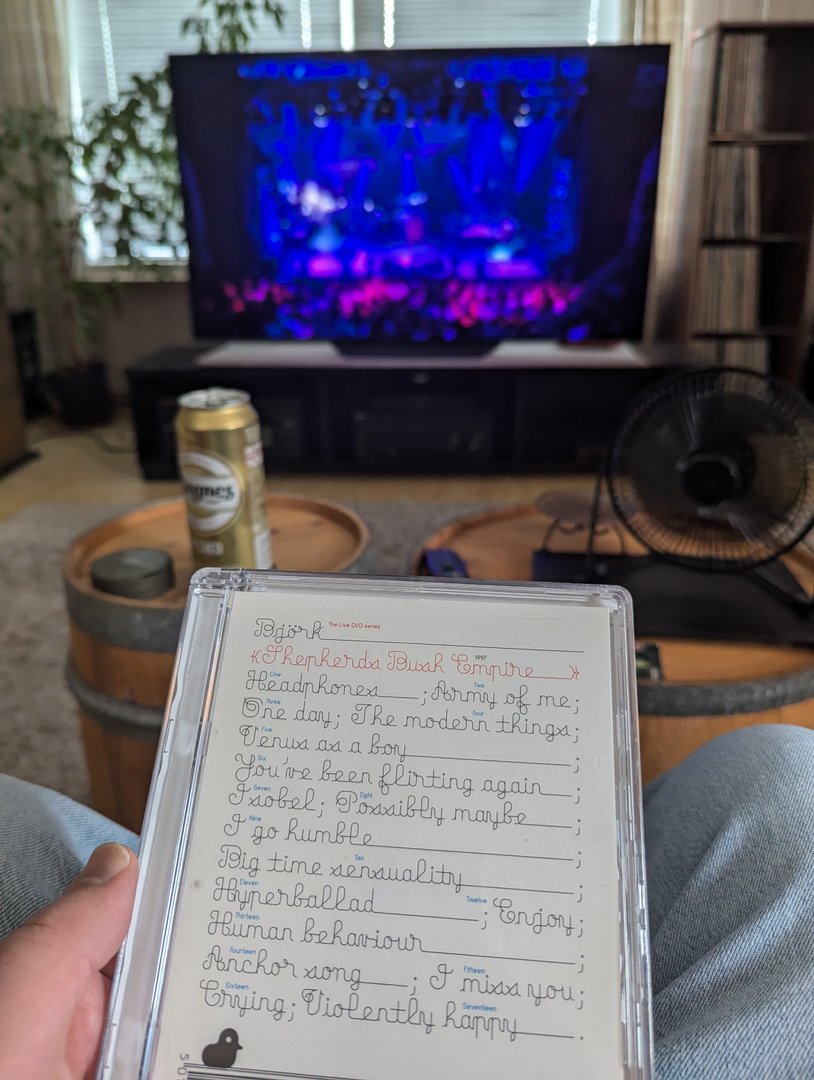 Björk The Live DVD series
«Shepherds Bush Empire 1997»
One Headphones; Two Army of me;
Three One day; four The modern things;
Five Venus as a boy;
Six You've been flirting again;
Seven Isobel; Eight Possibly maybe;
Nine I go humble;
Ten Big time sensuality;
Eleven Hyperballad; Twelve Enjoy;
Thirteen Human behaviour;
fourteen Anchor song; Fifteen I miss you;
Sixteen Crying; Seventeen Violently happy.